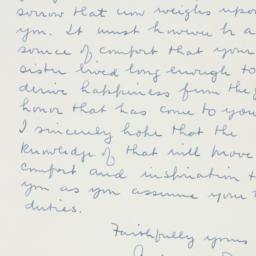 sorrow that now weighs upon
you. It must however be a
source of comfort that your
sister lived long enough to
derive happiness from the
honor that has come to you
I sincerely hope that the
knowledge of that will prove
comfort and inspiration t
you as you assume your
duties.
Faithfully yours